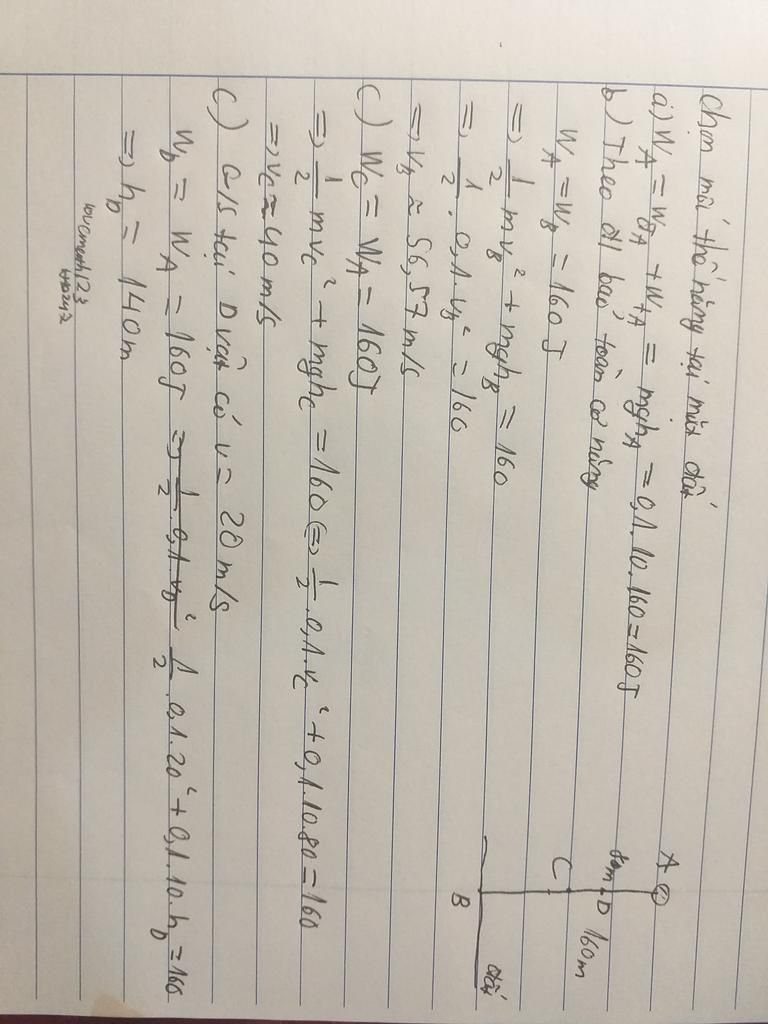 Chọn mốc thế năng tại mặt đất
a) W_A = W_đA + W_tA = mgh_A = 0,1.10.160=160J
b) Theo đl bảo toàn cơ năng
W_A = W_B = 160J
=> 1/2 mv_B² + mgh_B = 160
=> 1/2 . 0,1.v_B² = 160
=> v_B ≈ 56,57 m/s
c) W_C = W_A = 160J
=> 1/2 mv_C² + mgh_C = 160 <=> 1/2 .0,1.v_C² + 0,1.10.80=160
=> v_C = 40 m/s
c) G/s tại D vật có v = 20 m/s
W_D = W_A = 160J => 1/2 0,1.v_D² 1/2 .0,1.20² + 0,1.10.h_D = 160
=> h_D = 140m
A
D
160m
C
B
đất